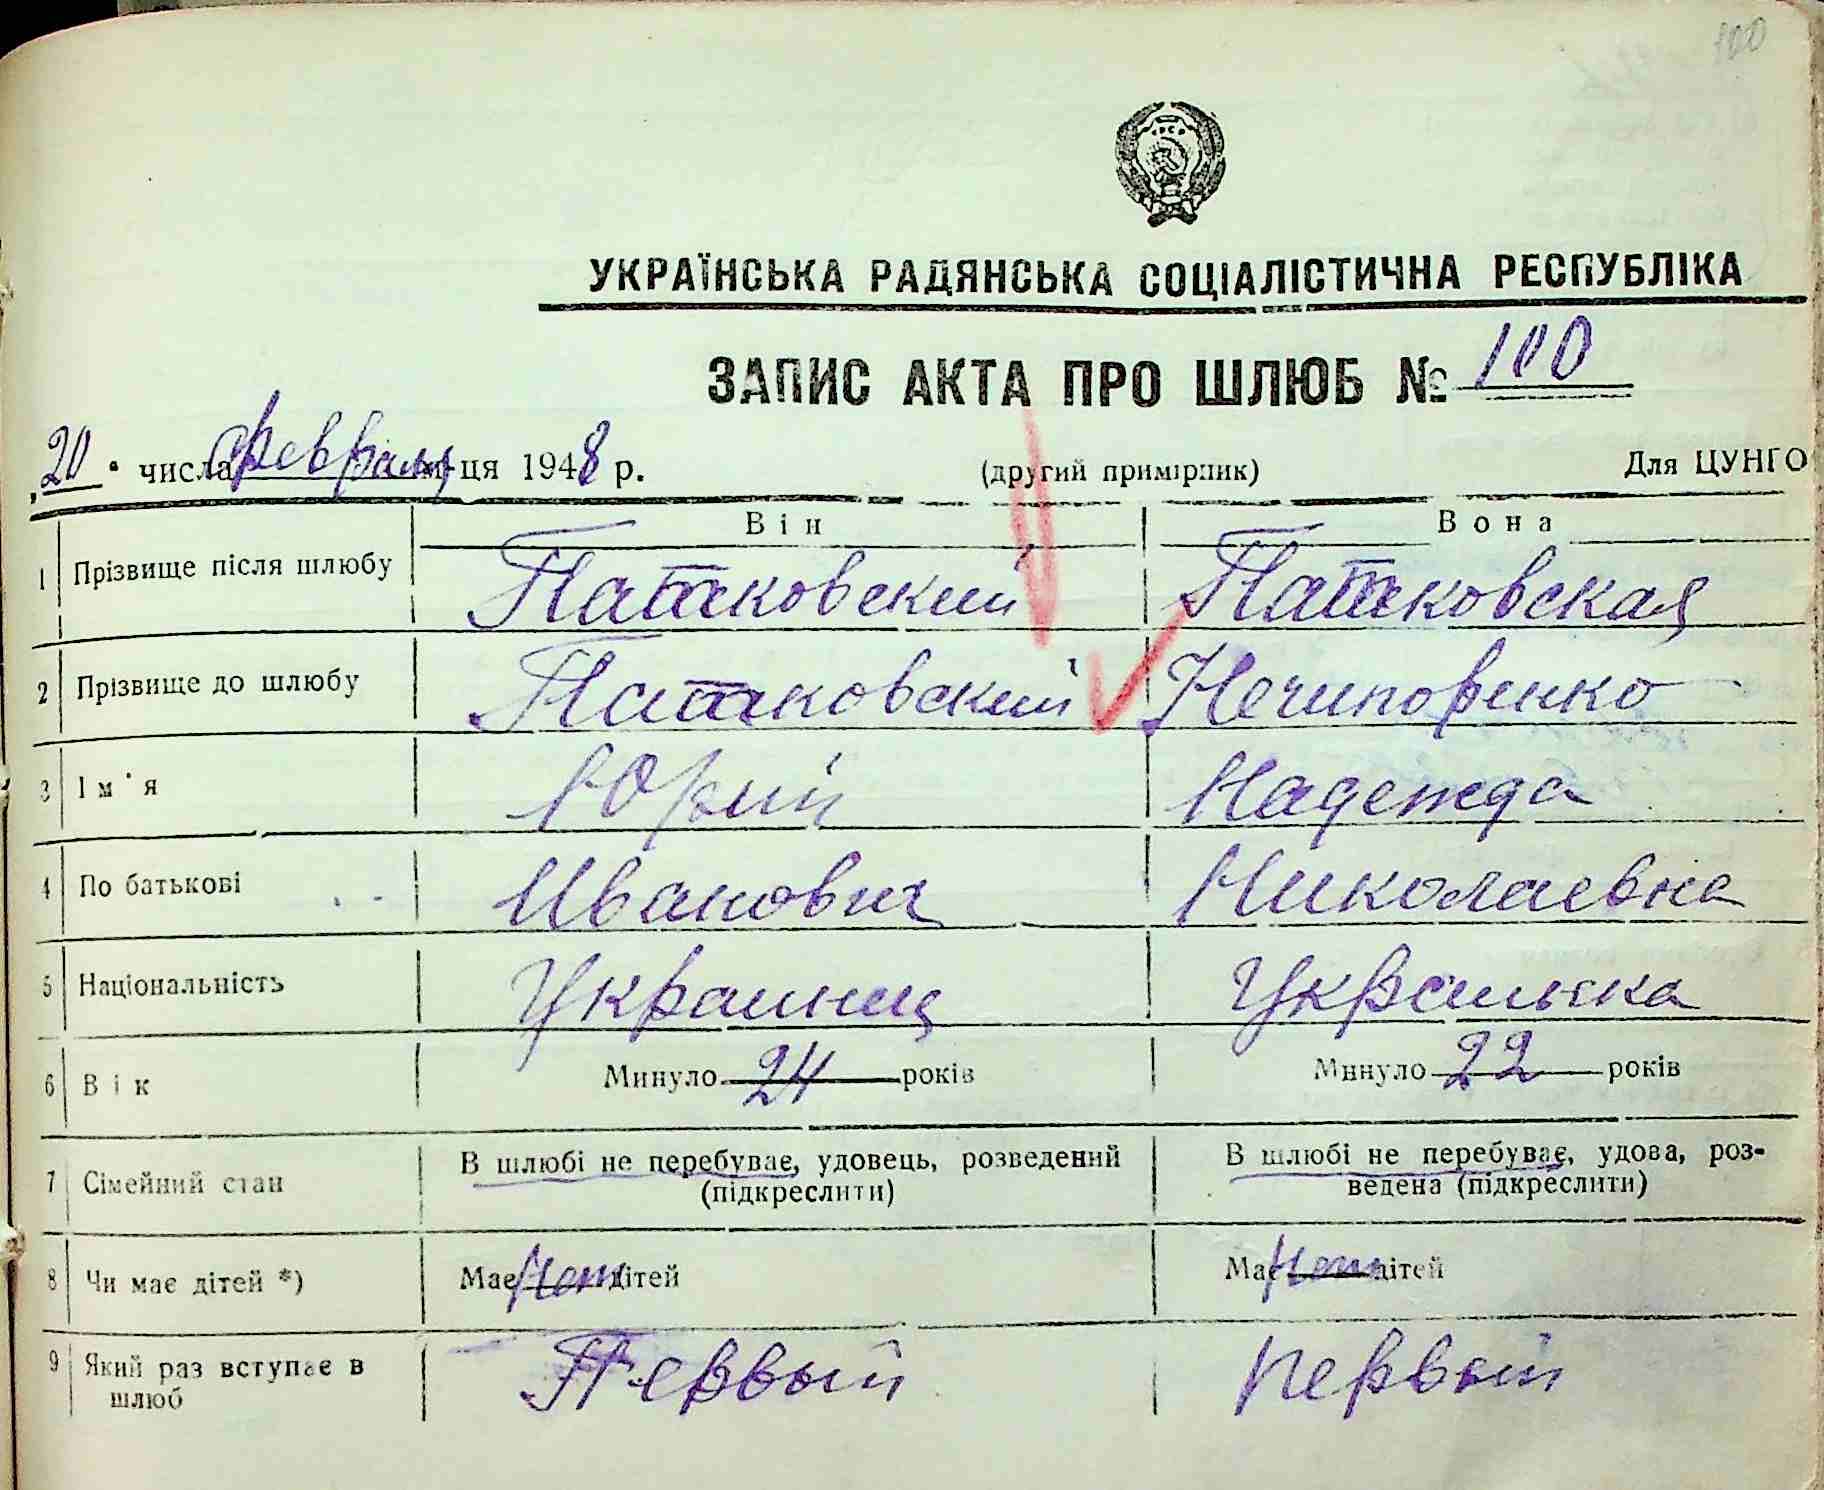 100
УКРАЇНСЬКА РАДЯНСЬКА СОЦІАЛІСТИЧНА РЕСПУБЛІКА
ЗАПИС АКТА ПРО ШЛЮБ № 100
„20" числа февраля м-ця 1948 р. (другий примірник) Для ЦУНГО
Він Вона
1 Прізвище після шлюбу Патаковский Патаковская
2 Прізвище до шлюбу Патаковский Нечипоренко
3 Ім'я Юрий Надежда
4 По батькові Иванович Николаевна
5 Національність Украинец Украинка
6 Вік Минуло 24 років Минуло 22 років
7 Сімейний стан В шлюбі не перебуває, удовець, розведений (підкреслити) В шлюбі не перебуває, удова, роз-
ведена (підкреслити)
8 Чи має дітей *) Має Нет дітей Має Нет дітей
9 Який раз вступає в Первый первый
шлюб